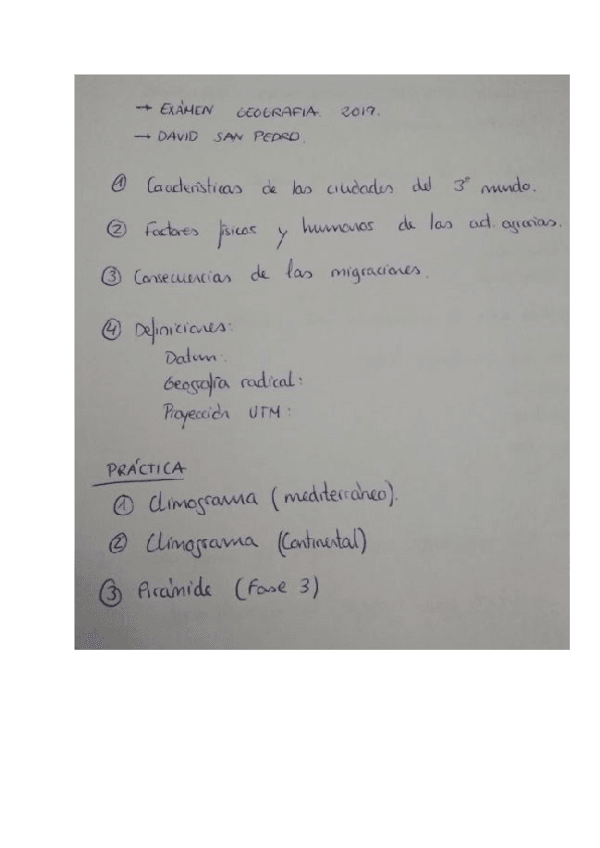 → EXÁMEN GEOGRAFIA 2017.
→ DAVID SAN PEDRO.
① Caracteristicas de las ciudades del 3º mundo.
② Factores físicos y humanos de las act. agrarias.
③ Consecuencias de las migraciones.
④ Definiciones:
Datum:
Geografía radical:
Proyección UTM:
PRÁCTICA
① Climograma (mediterráneo).
② Climograma (Continental)
③ Pirámide (Fase 3)